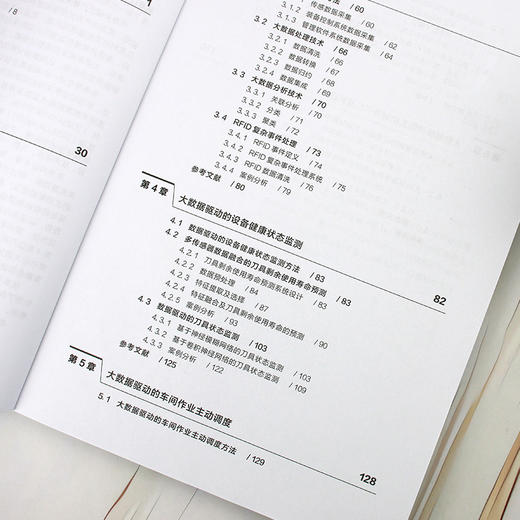 1
/ 8
30
法 / 60
3.1.1 传感数据采集 / 60
3.1.2 装备控制系统数据采集 / 62
3.1.3 管理软件系统数据采集 / 64
3.2 大数据处理技术 / 66
3.2.1 数据清洗 / 66
3.2.2 数据转换 / 67
3.2.3 数据归约 / 68
3.2.4 数据集成 / 69
3.3 大数据分析技术 / 70
3.3.1 关联分析 / 70
3.3.2 分类 / 71
3.3.3 聚类 / 72
3.4 RFID复杂事件处理 / 73
3.4.1 RFID事件定义 / 74
3.4.2 RFID复杂事件处理系统 / 75
3.4.3 RFID数据清洗 / 76
3.4.4 案例分析 / 79
参考文献 / 80
第4章 大数据驱动的设备健康状态监测 82
4.1 数据驱动的设备健康状态监测方法 / 83
4.2 多传感器数据融合的刀具剩余使用寿命预测 / 83
4.2.1 刀具剩余使用寿命预测系统设计 / 83
4.2.2 数据预处理 / 84
4.2.3 特征提取及选择 / 87
4.2.4 特征融合及刀具剩余使用寿命的预测 / 90
4.2.5 案例分析 / 93
4.3 数据驱动的刀具状态监测 / 103
4.3.1 基于神经模糊网络的刀具状态监测 / 103
4.3.2 基于卷积神经网络的刀具状态监测 / 109
4.3.3 案例分析 / 122
参考文献 / 125
第5章 大数据驱动的车间作业主动调度 128
5.1 大数据驱动的车间作业主动调度方法 / 129